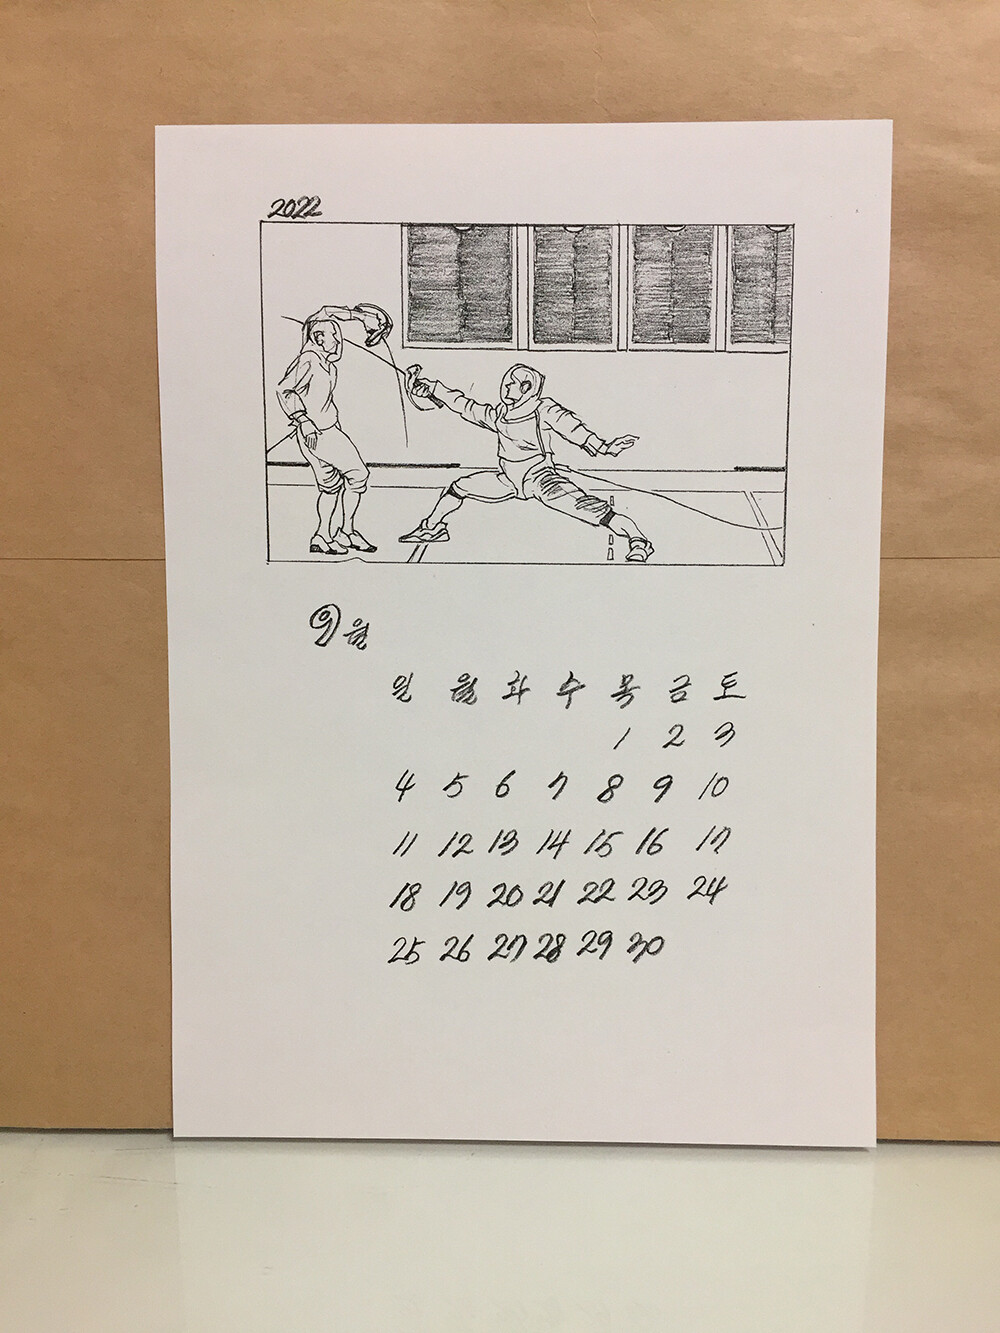 2022
9월
일 월 화 수 목 금 토
1 2 3
4 5 6 7 8 9 10
11 12 13 14 15 16 17
18 19 20 21 22 23 24
25 26 27 28 29 30